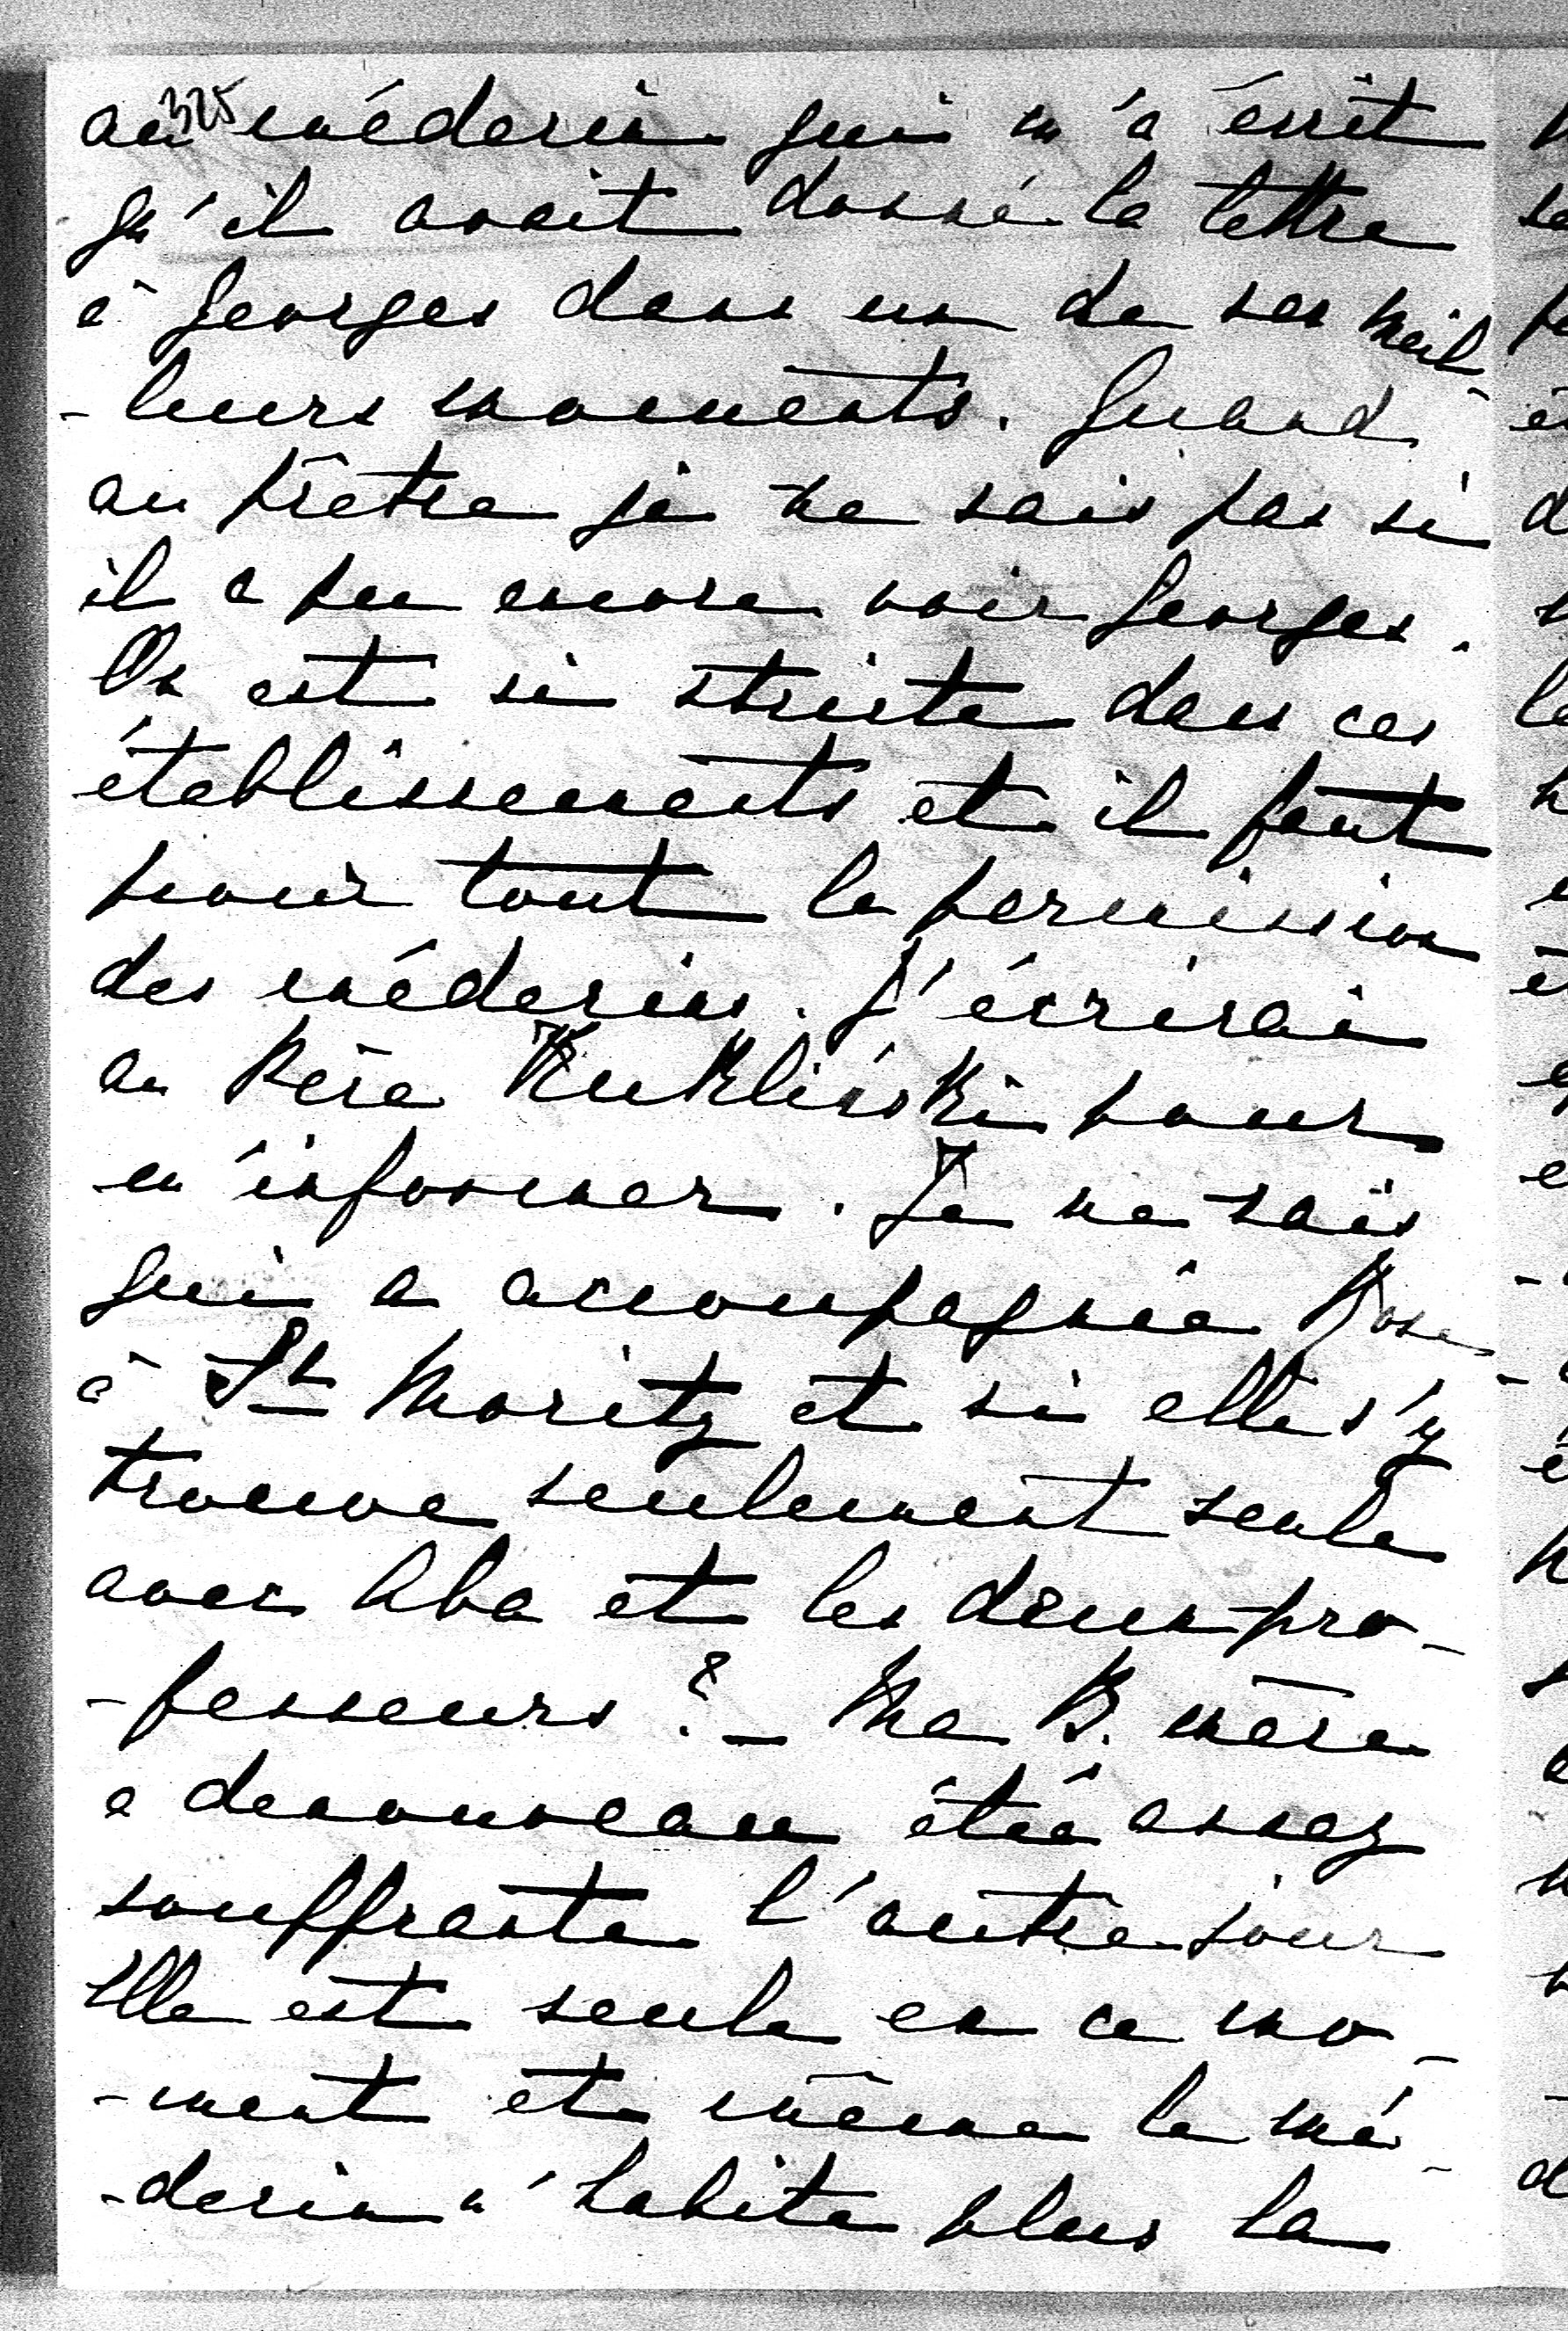 325
au médecin qui m'a écrit
qu'il avait donné la lettre
à Georges dans un de ses meil-
-leurs moments. Quand
au prêtre je ne sais pas si
il a pu encore voir Georges.
On est si stricte dans ces
établissements et il faut
pour tout la permission
des médecins. J'écrirai
au Père Kuklinski pour
m'informer. Je ne sais
qui a accompagnée Rose
à St Moritz et si elle s'y
trouve seulement seule
avec Aba et les deux pro-
-fesseurs? - Ma B. mère
a denouveau étée assez
souffrante l'autre jour
Elle est seule en ce mo-
-ment et même le mé-
-decin n'habite plus la